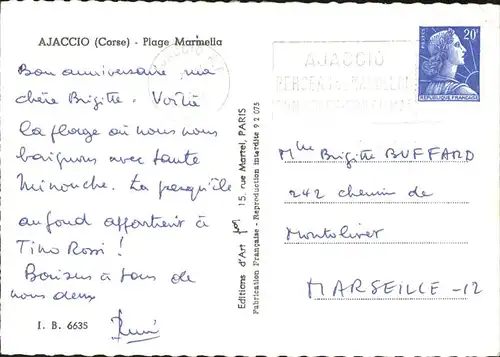 AJACCIO (Corse) - Plage Marinella
Bon anniversaire, ma
chère Brigitte. Voilà
la plage où nous nous
baignons avec tante
Minouche. La presqu'île
au fond appartient à
Tino Rossi !
Baisers à tous de
nous deux
I. B. 6635
Editions d'Art 15, rue Martel, PARIS
Fabrication Française - Reproduction interdite 9 2 075
AJACCIO
POSTES 20F
REPUBLIQUE FRANÇAISE
Mlle Brigitte BUFFARD
242 chemin de
Montolivet
MARSEILLE-12